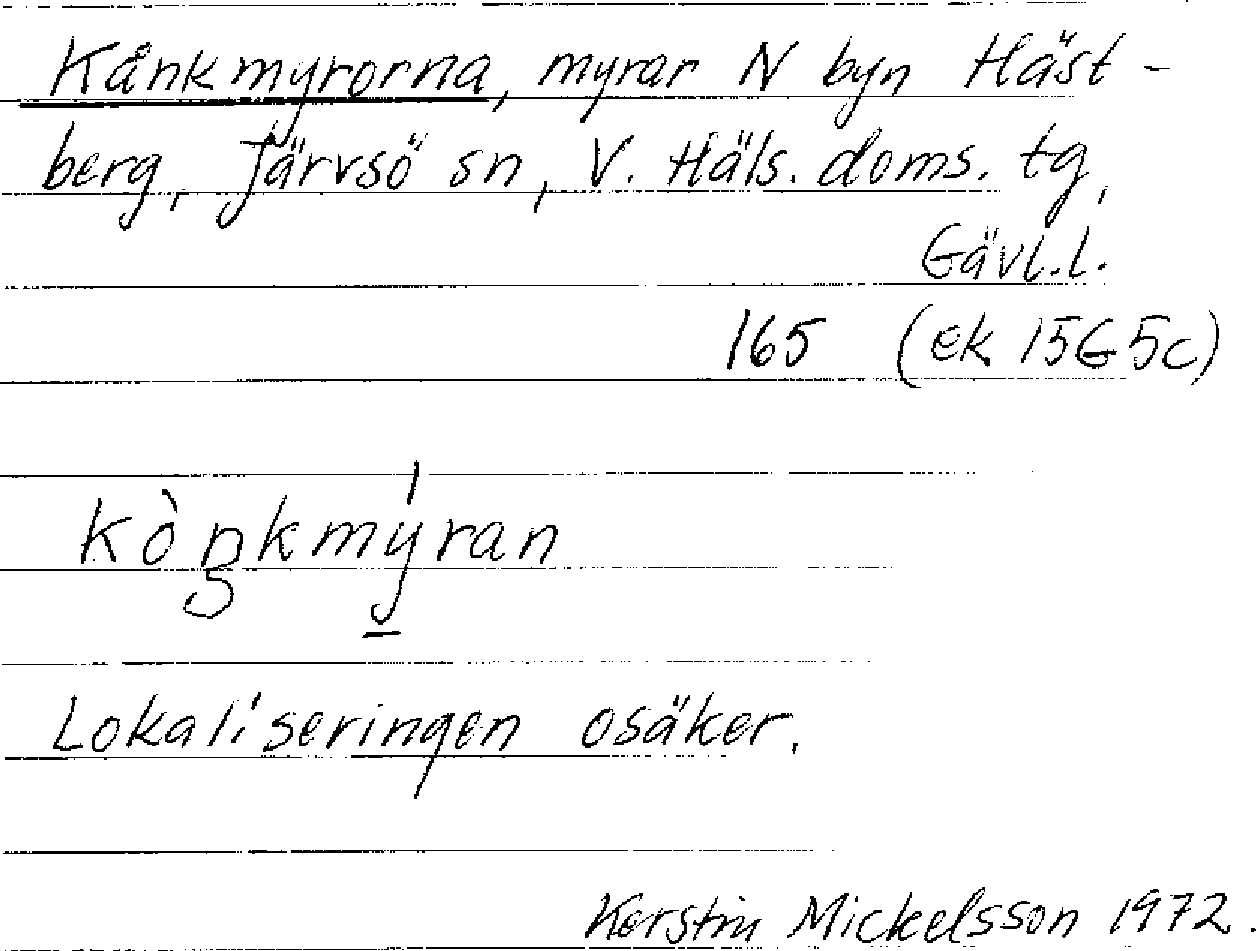 Kånkmyrorna, myrar N byn Häst-
berg, Järvsö sn, V. Häls. doms. tg,
Gävl.l.
165 (ek 15G5c)
kòŋkmý̲ran
Lokaliseringen osäker.
Kerstin Mickelsson 1972.